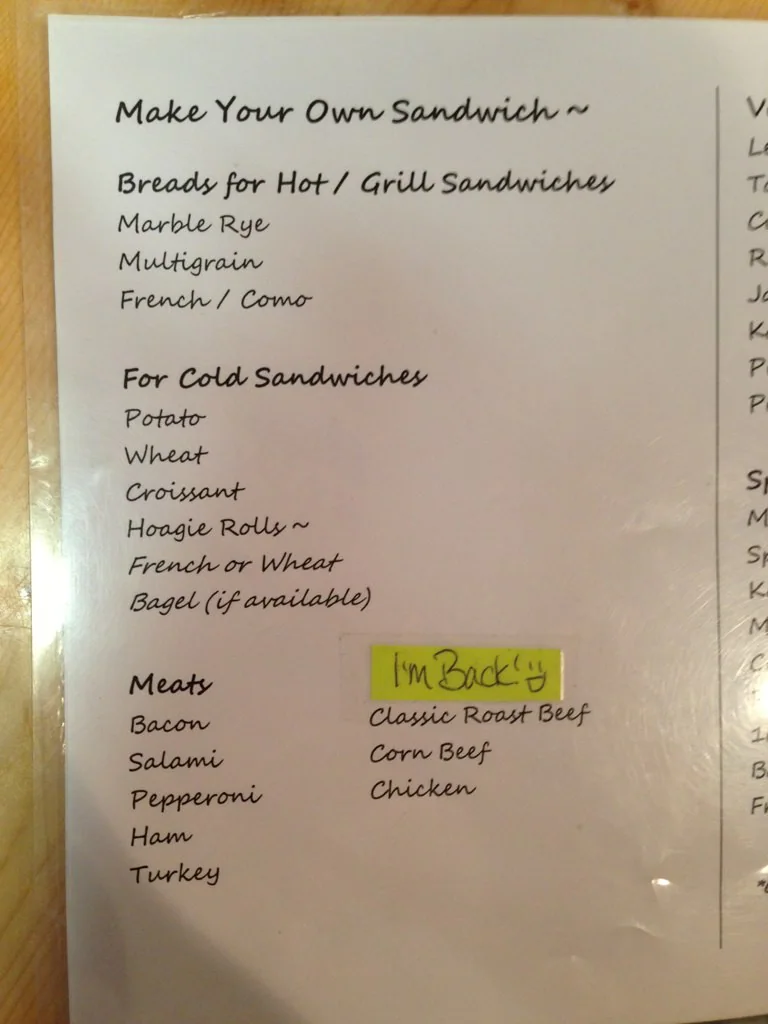 Make Your Own Sandwich ~
Breads for Hot / Grill Sandwiches
Marble Rye
Multigrain
French / Como
For Cold Sandwiches
Potato
Wheat
Croissant
Hoagie Rolls ~
French or Wheat
Bagel (if available)
Meats
Bacon
Salami
Pepperoni
Ham
Turkey
I'm Back!
Classic Roast Beef
Corn Beef
Chicken